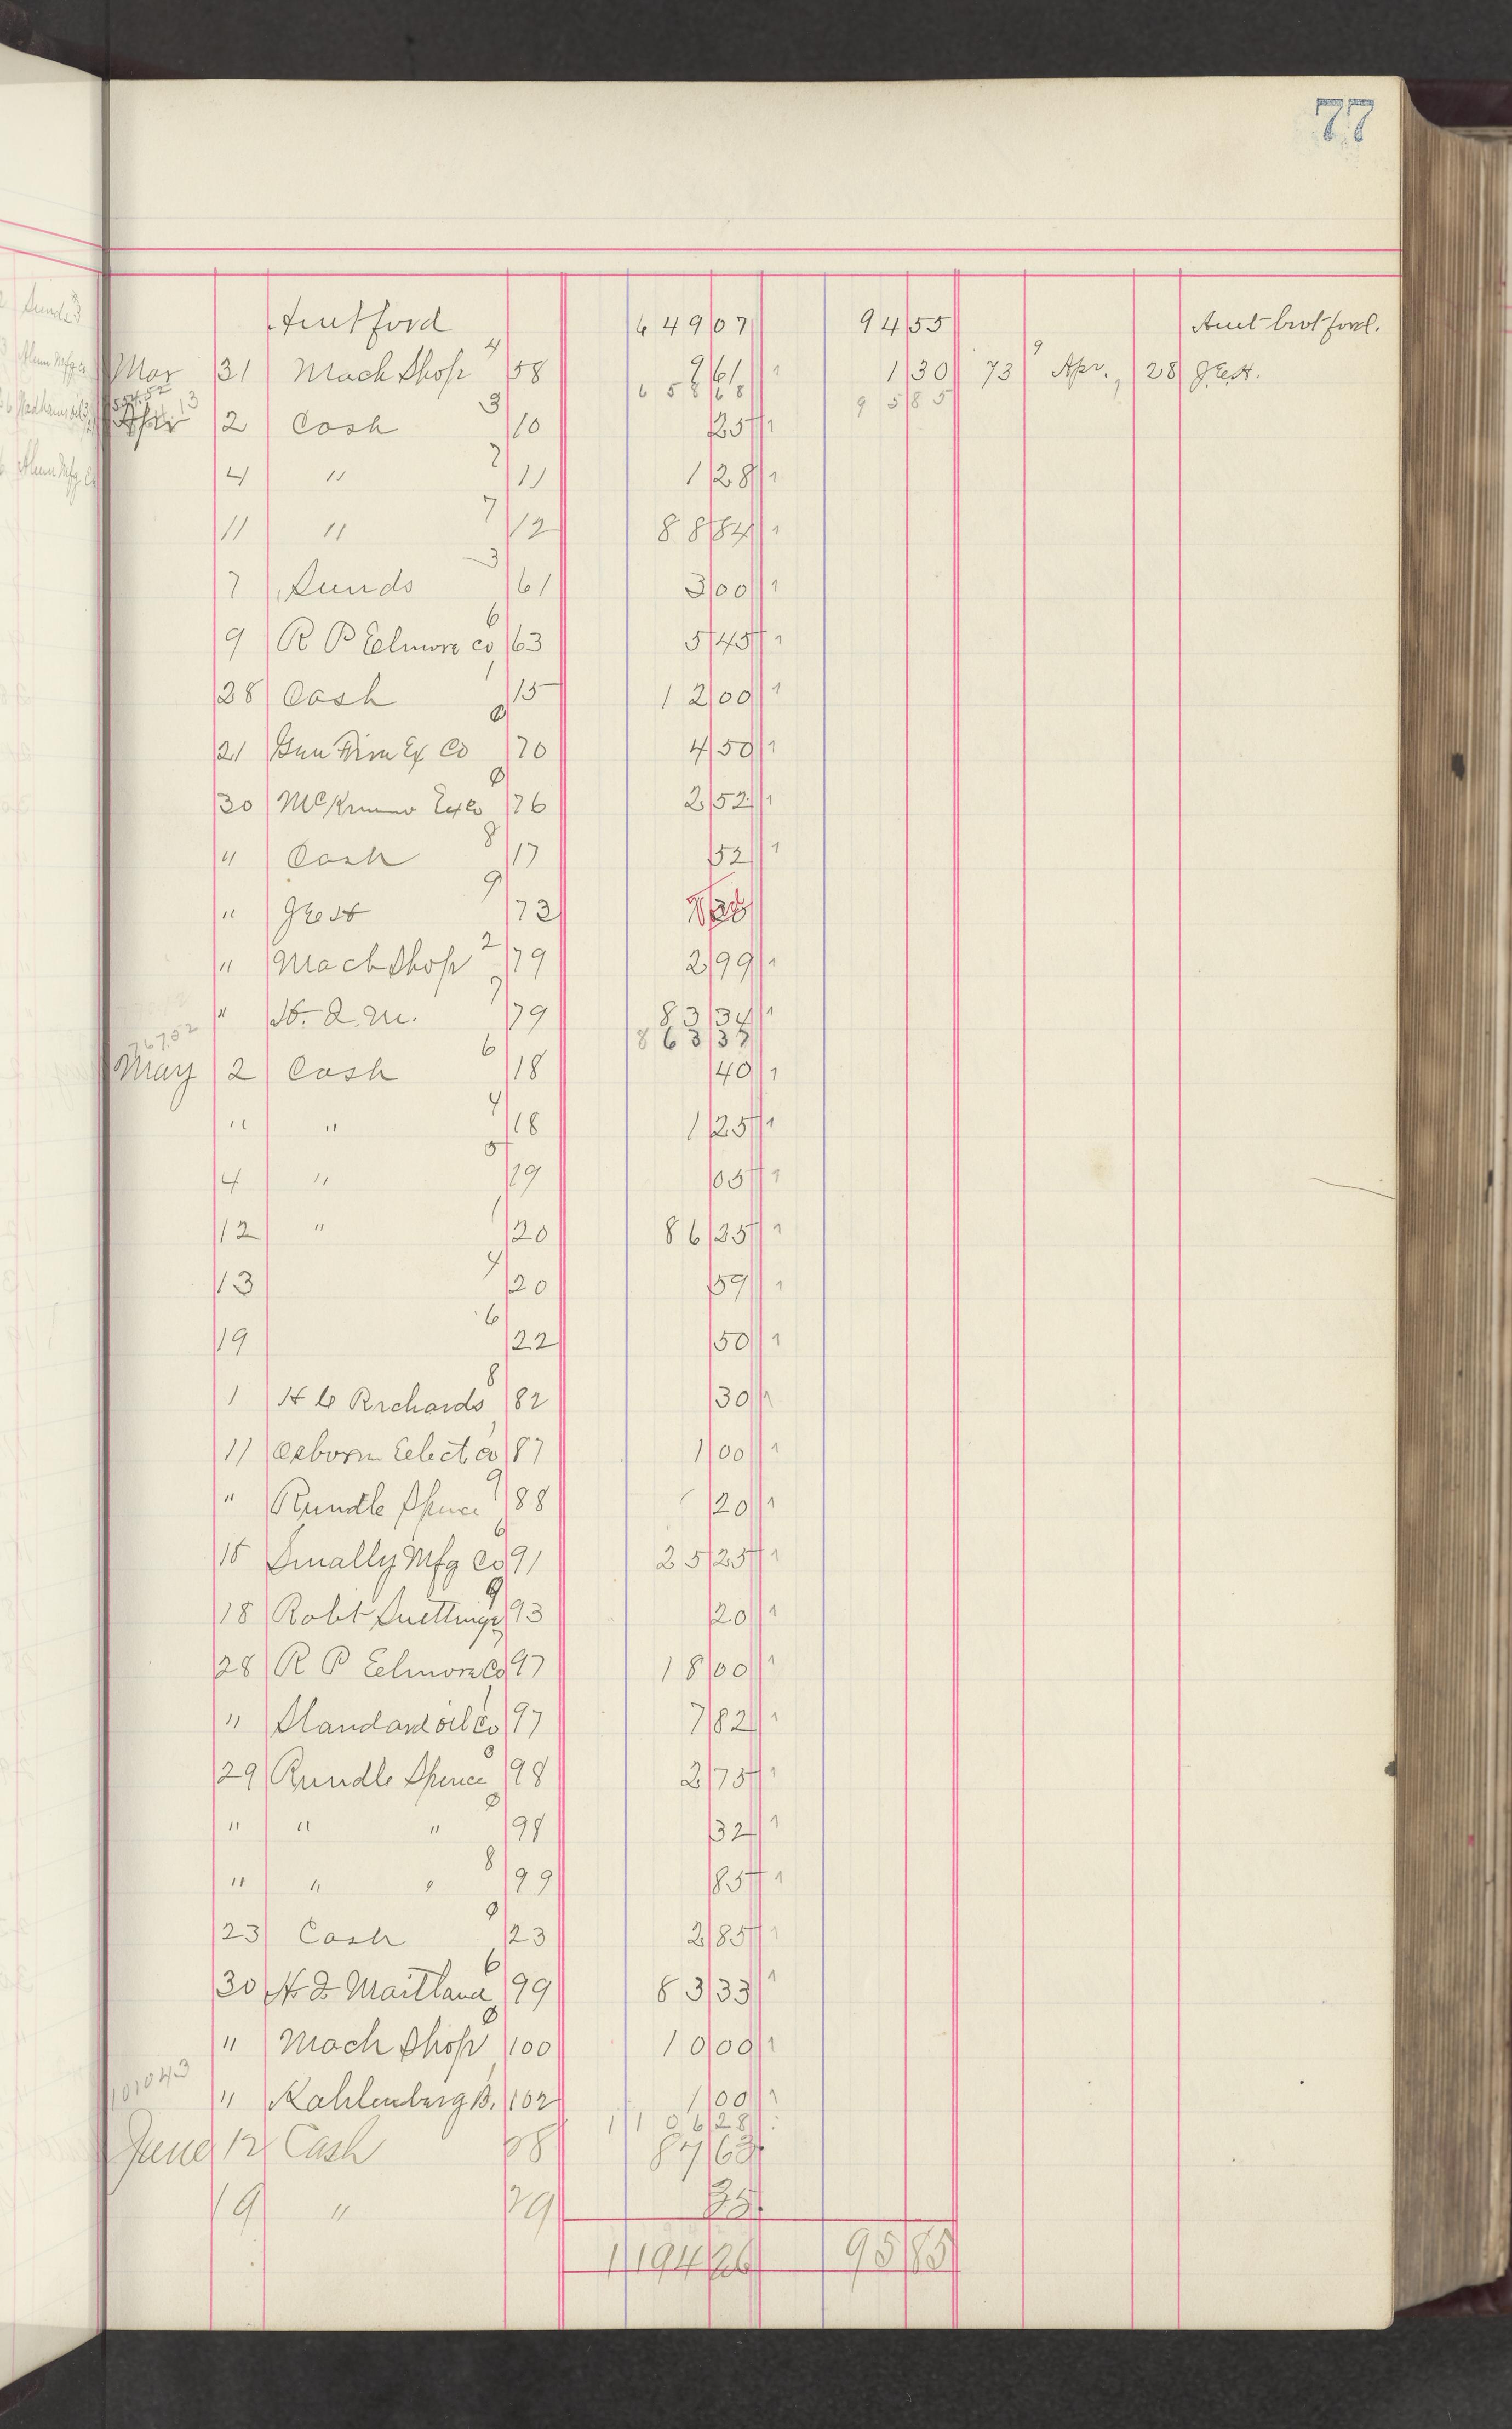 77
Amt ford 649 07 94 55 Amt brot ford.
Mar 31 Mach Shop 4 58 9 61 1 30 73 9 Apr. 28
658 68 95 85
Apr 2 Cash 3 10 25
4 " 11 1 28
11 " 7 12 88 84
7 Sunds 3 61 3 00
9 R P Eelmore Co 6 63 5 45
28 Cash 15 12 00
21 Ex Co 70 4 50
30 76 2 52
" Cash 8 17 52
" 9 73
" Mach Shop 2 79 2 99
" 79 83 34
767.52 863 37
May 2 Cash 6 18 40
" " 4 18 1 25
4 " 5 19 05
12 " 1 20 86 25
13 4 20 59
19 6 22 50
1 Richards 8 82 30
11 Osborn Eelect Co 87 1 00
" Rundle Spence 9 88 20
15 Smally Mfg Co 6 91 25 25
18 Robt 9 93 20
28 R P Eelmore Co 97 18 00
" Standard oil Co 97 7 82
29 Rundle Spence 8 98 2 75
" " " 98 32
" " " 8 99 85
23 Cash 9 23 2 85
30 Maitland 6 99 83 33
" Mach Shop 8 100 10 00
101043 " Kahlenberg B. 102 1 00
1106 28
June 12 Cash 28 87 63
19 " 29 35
1194 26 95 85